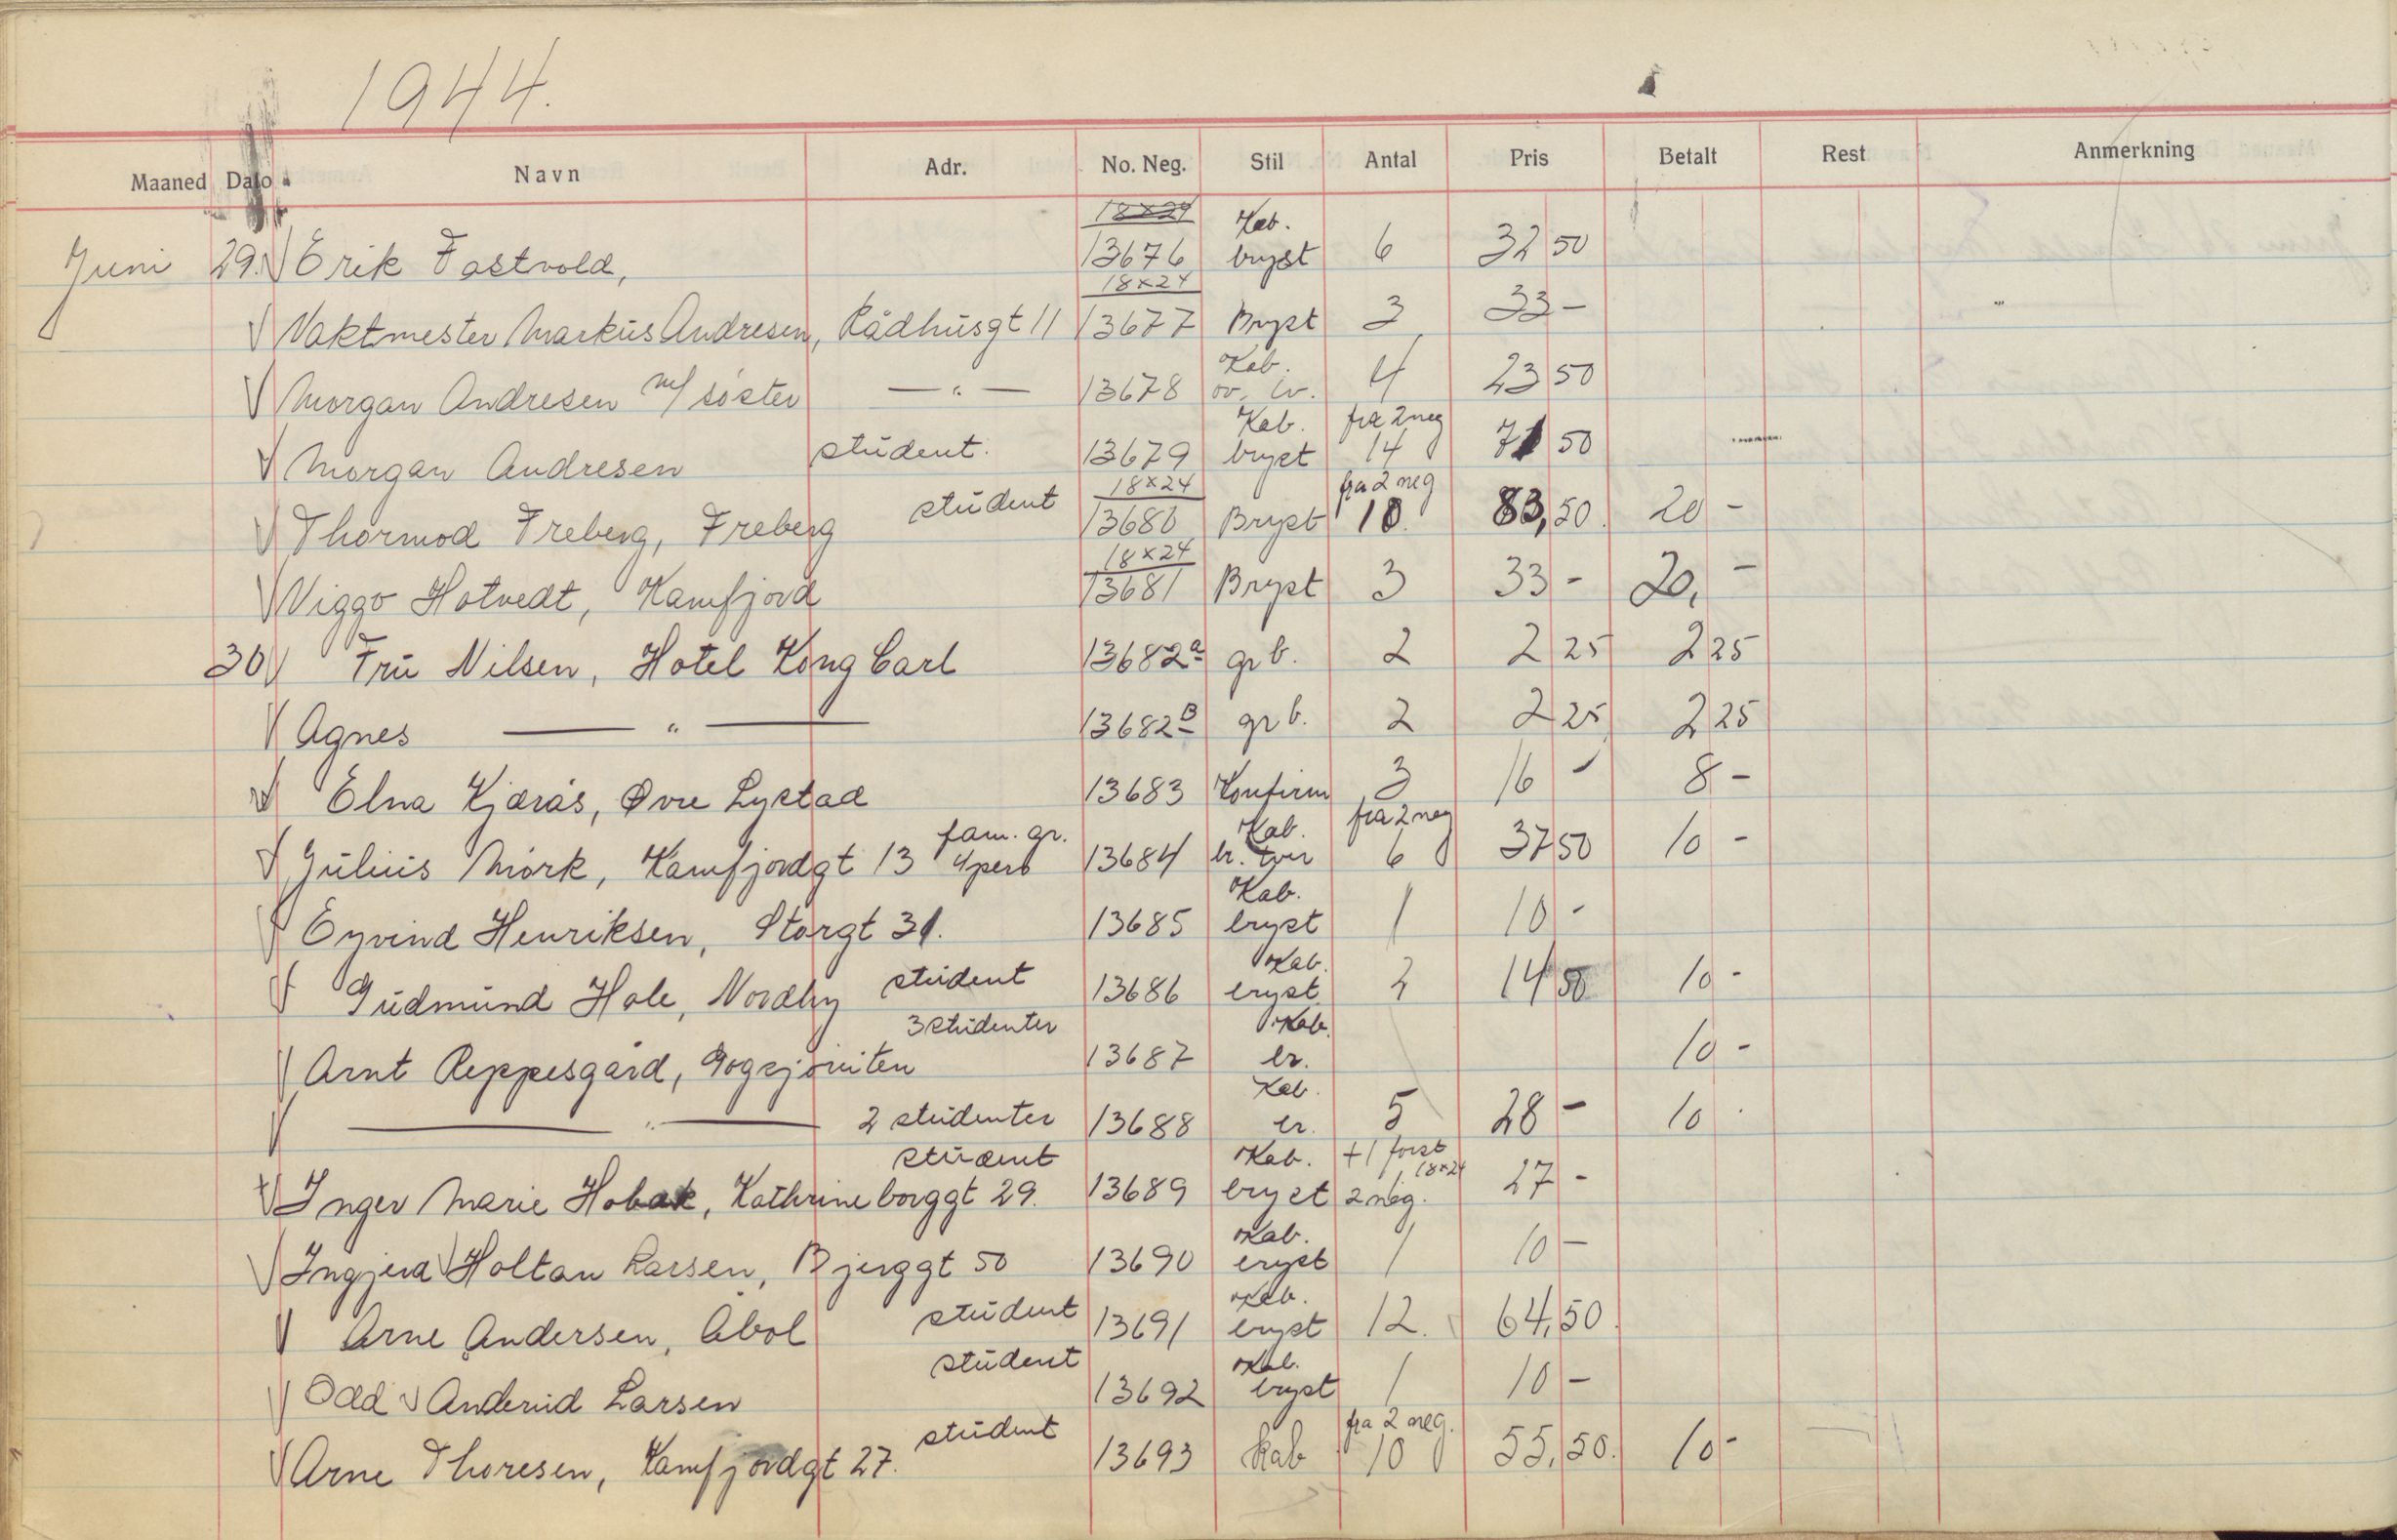 1944.
Maaned Dato Navn Adr. No. Neg. Stil Antal Pris Betalt Rest Anmerkning
18×24 Kab.
Juni 29. Erik Fastvold, 13676 bryst 6 32 50
18×24
Vaktmester Markus Andresen, Rådhusgt 11 13677 Bryst 3 33 -
Kab.
Morgan Andresen m/ søster — " — 13678 4 23 50
Kab. fra 2 neg
Morgan Andresen student. 13679 bryst 14 71 50
18×24 fra 2 neg
Thormod Freberg, Freberg student 13680 Bryst 10. 83,50. 20 -
18×24
Viggo Hotvedt, Kamfjord 13681 Bryst 3 33 - 20, -
30 Fru Nilsen, Hotel Kong Carl 13682a gr b. 2 2 25 2 25
Agnes — " — 13682B gr b. 2 2 25 2 25
Elna Kjærås, Øvre Lystad 13683 Konfirm 3 16 - 8 -
fam. gr. Kab. fra 2 neg
Julius Mørk, Kamfjordgt 13 4 pers 13684 br. 6 37 50 10 -
Kab.
Eyvind Henriksen, Storgt 31. 13685 bryst 1 10 -
Kab.
Gudmund Hole, Nordby student 13686 bryst 2 14 50 10 -
3 studenter Kab.
Arnt Reppesgård, 13687 br. 10 -
Kab.
— " — 2 studenter 13688 br. 5 28 - 10
student Kab. +1 forst 18×24
Inger Marie Hobæk, Kathrineborggt 29. 13689 bryst 2 neg. 1 27 -
Kab.
Ingjerd Holtan Larsen, Bjerggt 50 13690 bryst 1 10 -
Kab.
Arne Andersen, Åbol student 13691 bryst 12. 64,50.
student Kab.
Odd Larsen 13692 bryst 1 10 -
student fra 2 neg.
Arne Thoresen, Kamfjordgt 27. 13693 kab 10 55,50. 10 -